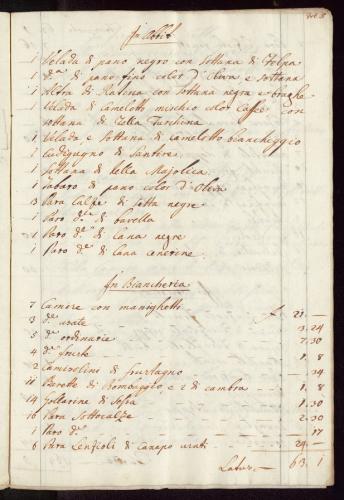 In Abiti
1 Velada di pano negro con sottana di Felpa
1 d.ª di pano fino color d'Oliva e sottana
1 Altra di Rasina con sottana negra e braghe
1 Velada di camelotto mischio color Caffè con
sottana di Tella Turchina
1 Velada e sottana di camelotto biancheggio
1 Codigugno di Santore
1 Sottana di bella Majolica
1 Tabaro di pano color d'Oliva
13 Para Calze di sotta negre
1 Paro d.e di bavella
1 Paro d.e di lana negre
1 Paro d.e di lana cenerine
In Biancheria
7 Camise con manighetti f 21 —
3 d.e usate 3.24
5 d.e ordinarie 7.30
4 d.e fruste 1.8
2 Camisolini di frustagno — 34
11 Barette di Bombaggio e 2 di cambra 1.8
14 Collarine di Sofia 1.30
10 Para Sottocalze 2.30
1 Paro d.e — 17
6 Para Lenzioli di canapo usati 24 —
Latus — 63.1